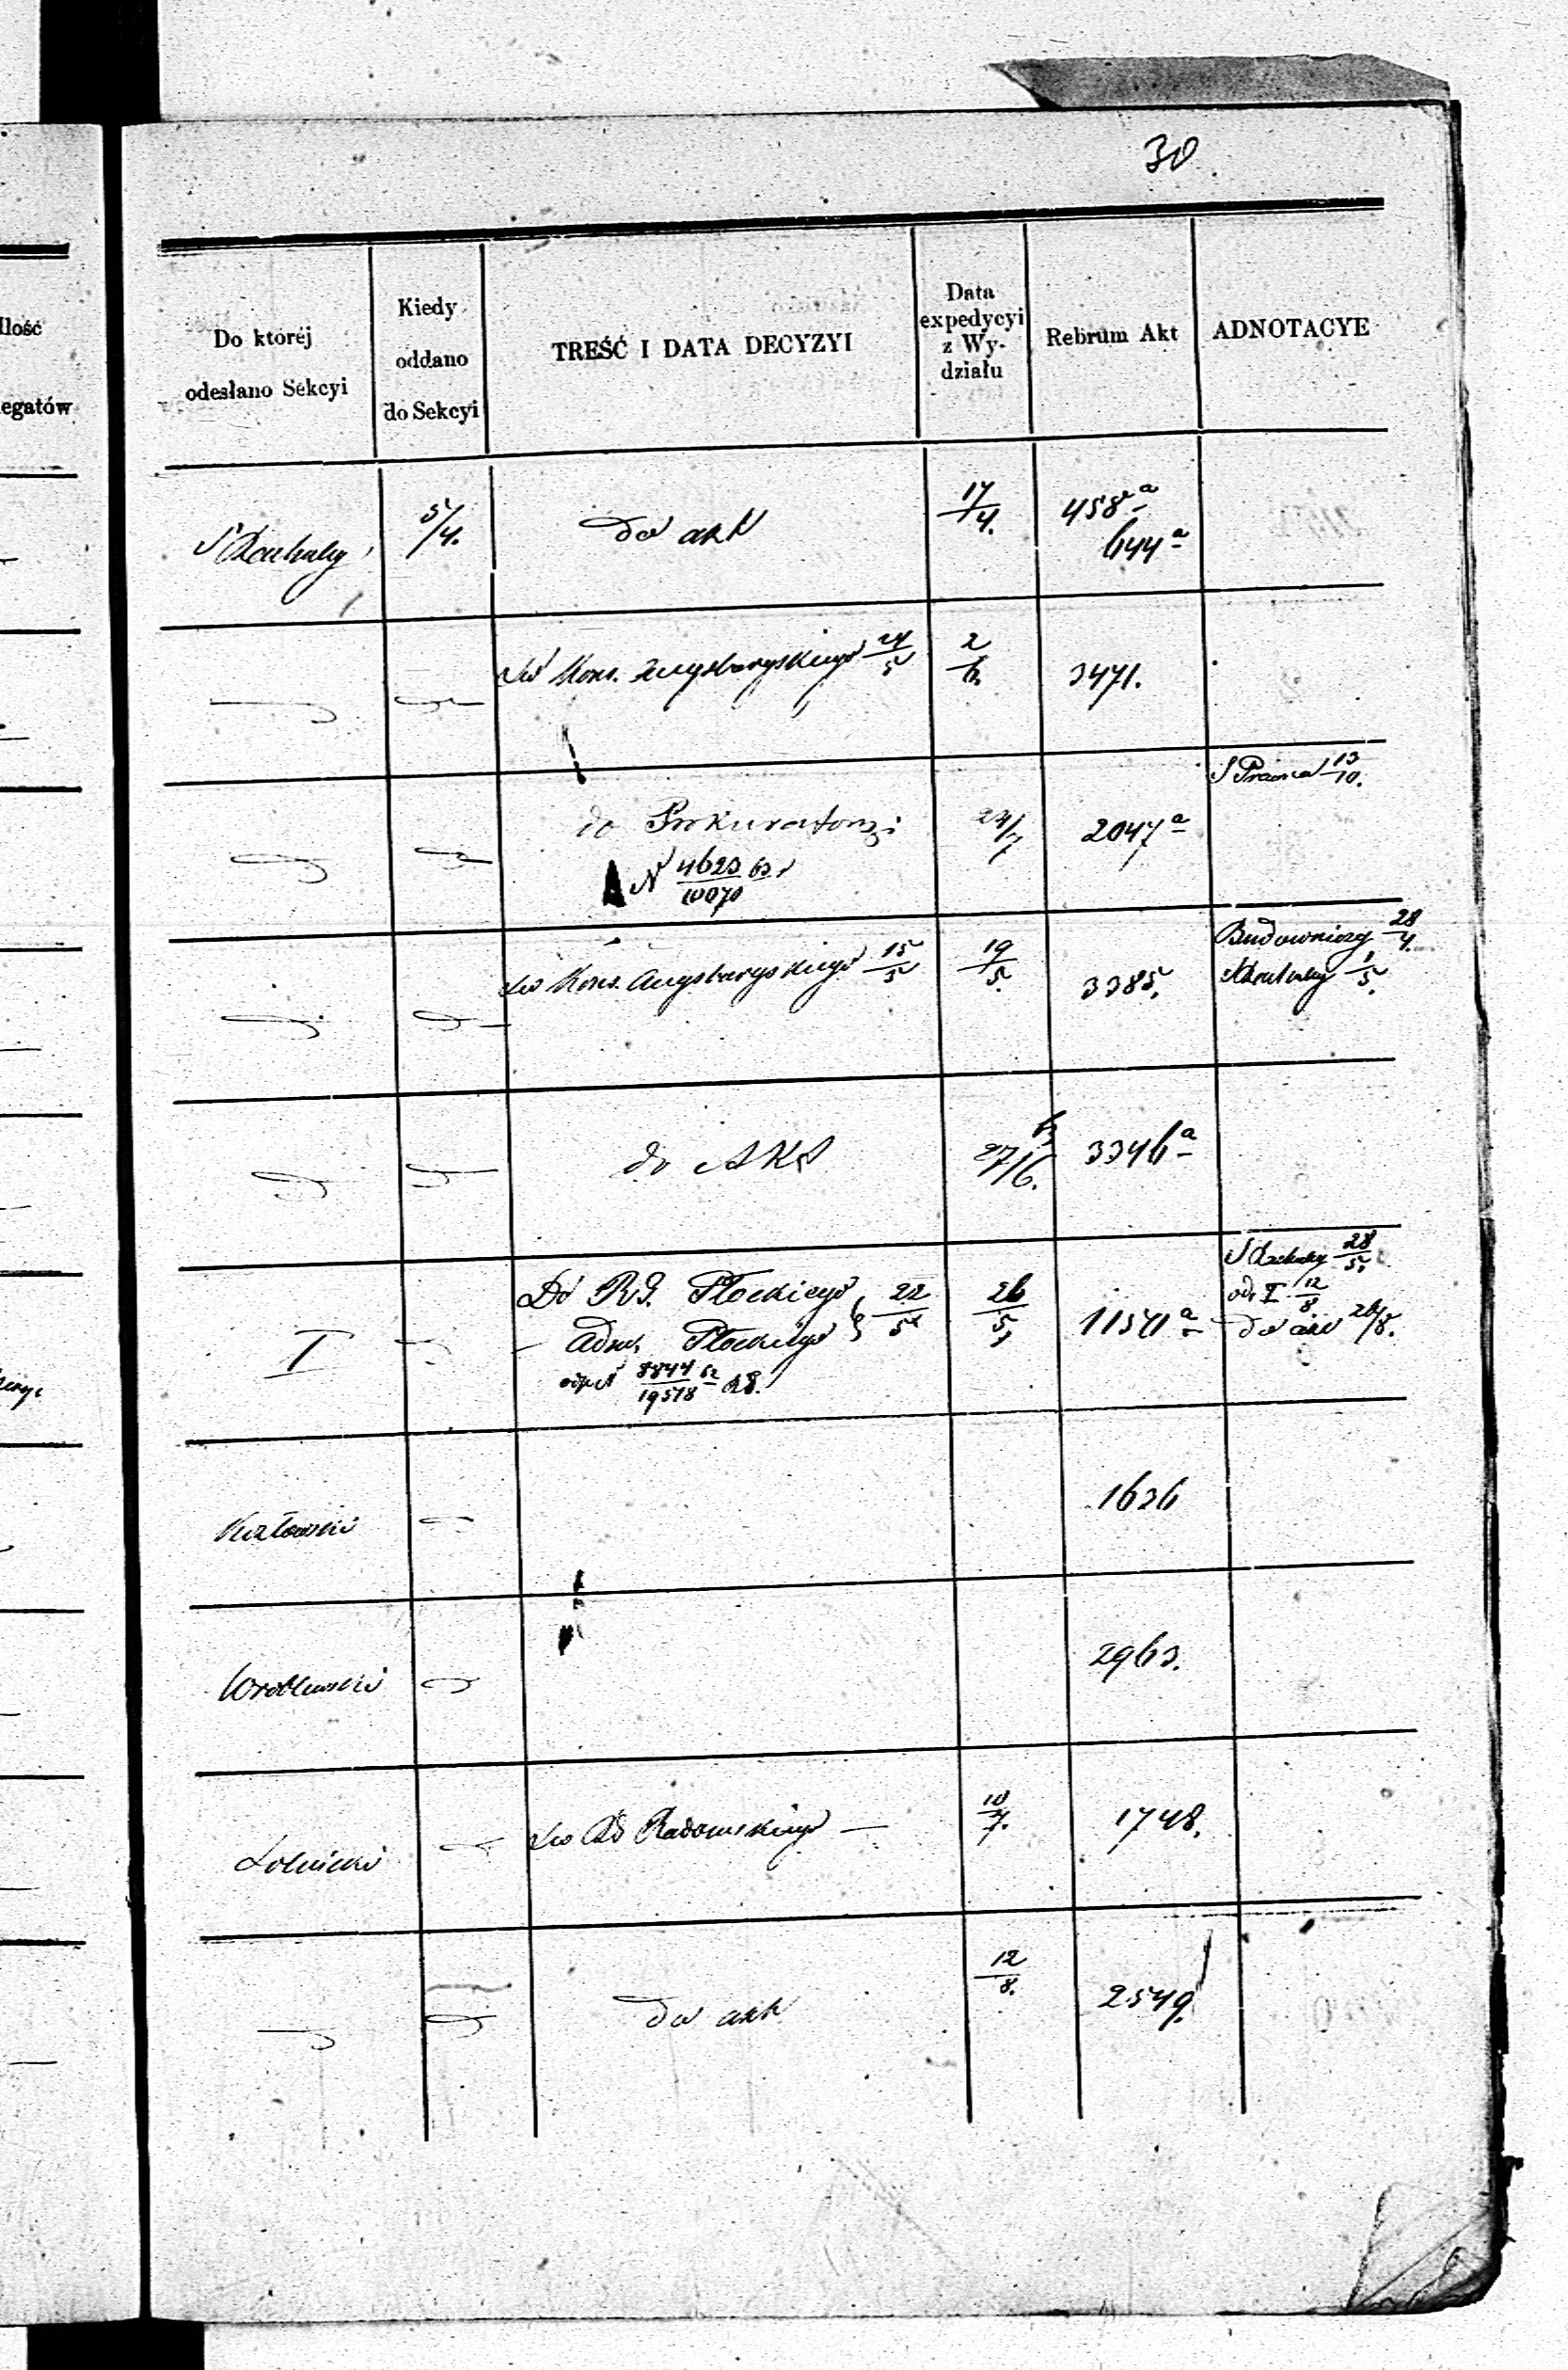 30
Ilość
egatów
Do któréj
odesłano Sekcyi
Kiedy
oddano
do Sekcyi
TREŚĆ I DATA DECYZYI
Data
expedycyi
z Wy-
działu
Rebrum Akt
ADNOTACYE
5/4.
do akt
17/4.
458 a
644 a
do Kons. Augsburgskiego 24/5
2/6.
3471.
do Prokuratorzi
N 4623/10070 63
24/7
2047 a
S Prawna 13/10.
do Kons. Augsburgskiego 15/5
19/5.
3385.
Budowniczy 28/4.
1/5.
do Akt
27/6.
3346 a
I
Do RG. Płockiego
Adm. Płockiego } 22/5
8844/19578 62
26/5
11571 a
28/5
od I 12/8.
do akt 26/8.
Kozłowski
1626
Wróblewski
2963.
Lolnicki
do Radomskiego —
10/7.
1748.
do akt
12/8.
2549.